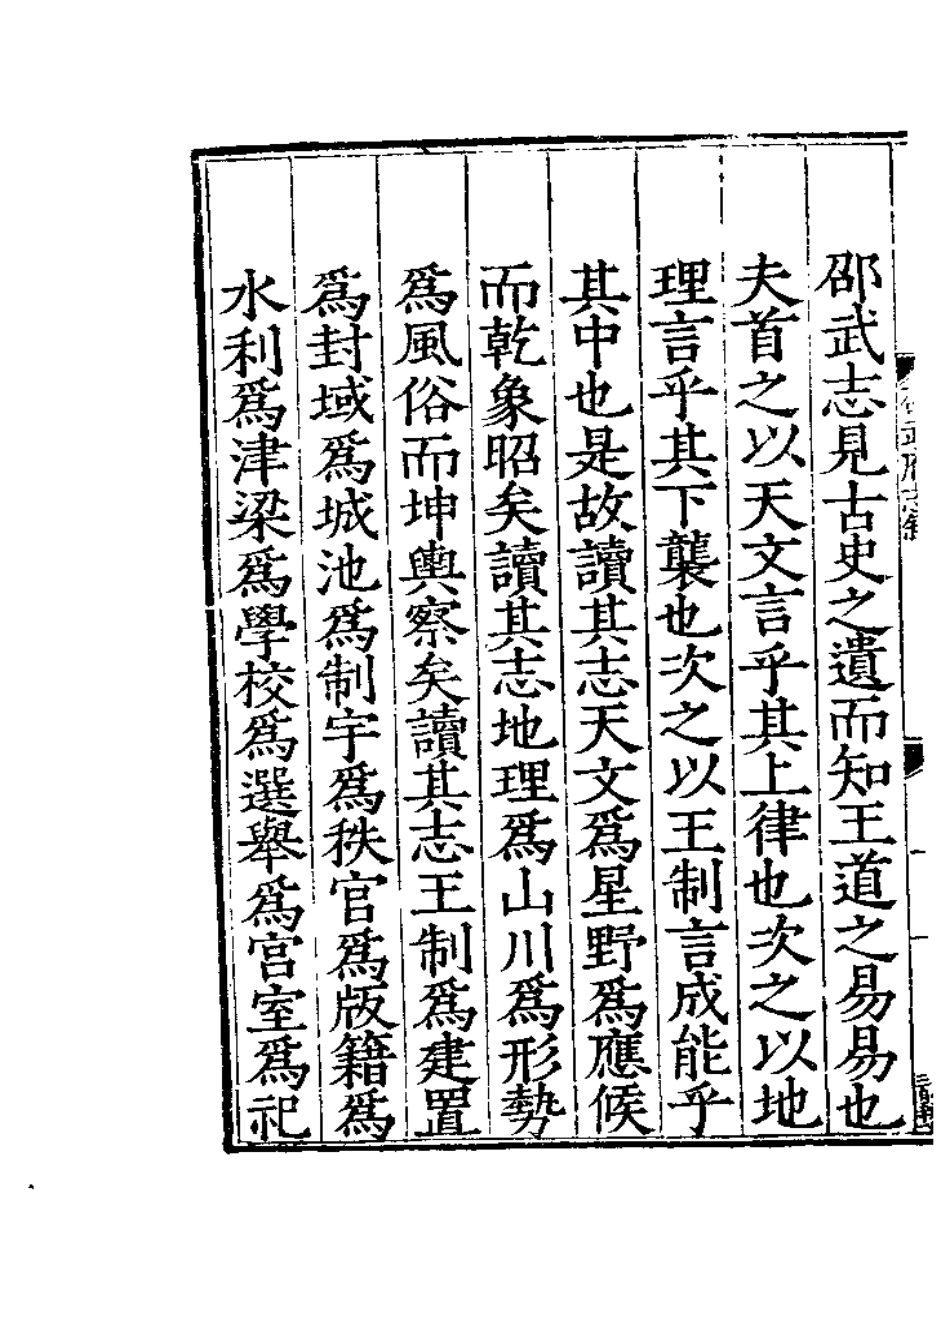 邵武志見古史之遺而知王道之易易也
夫首之以天文言乎其上律也次之以地
理言乎其下襲也次之以王制言成能乎
其中也是故讀其志天文爲星野爲應候
而乾象昭矣讀其志地理爲山川爲形勢
爲風俗而坤輿察矣讀其志王制爲建置
爲封域爲城池爲制宇爲秩官爲版籍爲
水利爲津梁爲學校爲選舉爲宮室爲祀